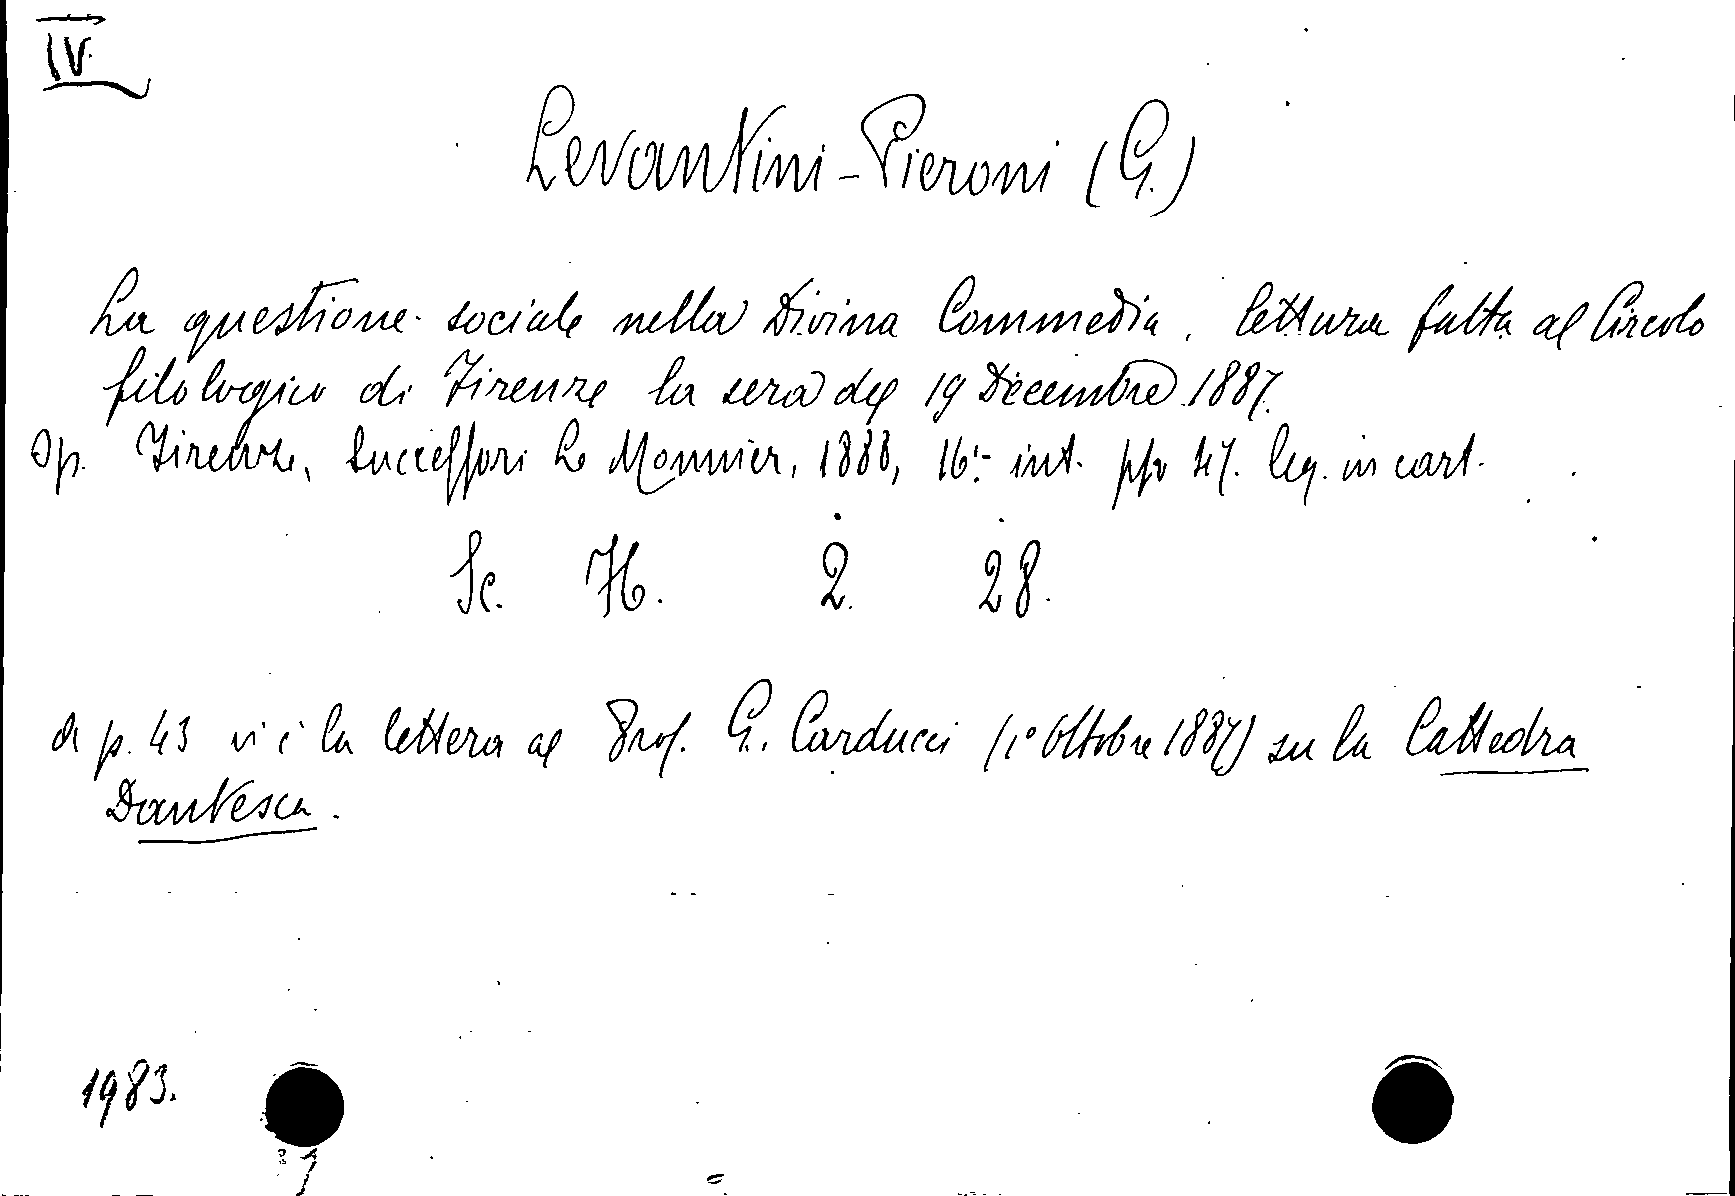 IV.
Levantini-Pieroni (G.)
La questione sociale nella Divina Commedia. lettura fatta al Circolo
filologico di Firenze la sera del 19 Decembre 1887.
Op. Firenze, Successori Le Monnier, 1888, 16.º int. pp 47. leg. in cart.
Sc. H. 2. 28.
A p. 43 vi è la lettera al Prof. G. Carducci (1º Ottobre 1887) su la Cattedra
Dantesca.
1983.